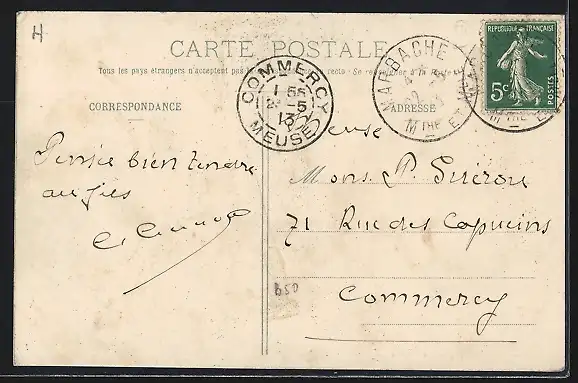 H
CARTE POSTALE
Tous les pays étrangers n'acceptent pas la recto - Se renseigner à la Poste
CORRESPONDANCE
ADRESSE
COMMERCY
1 55
2 -5
13
MEUSE
MARBACHE
MTHE ET M
REPUBLIQUE FRANÇAISE
5c
POSTES
Pensée bien tendre
Meuse
Mons. P.
71 Rue des Capucins
Commercy
B50